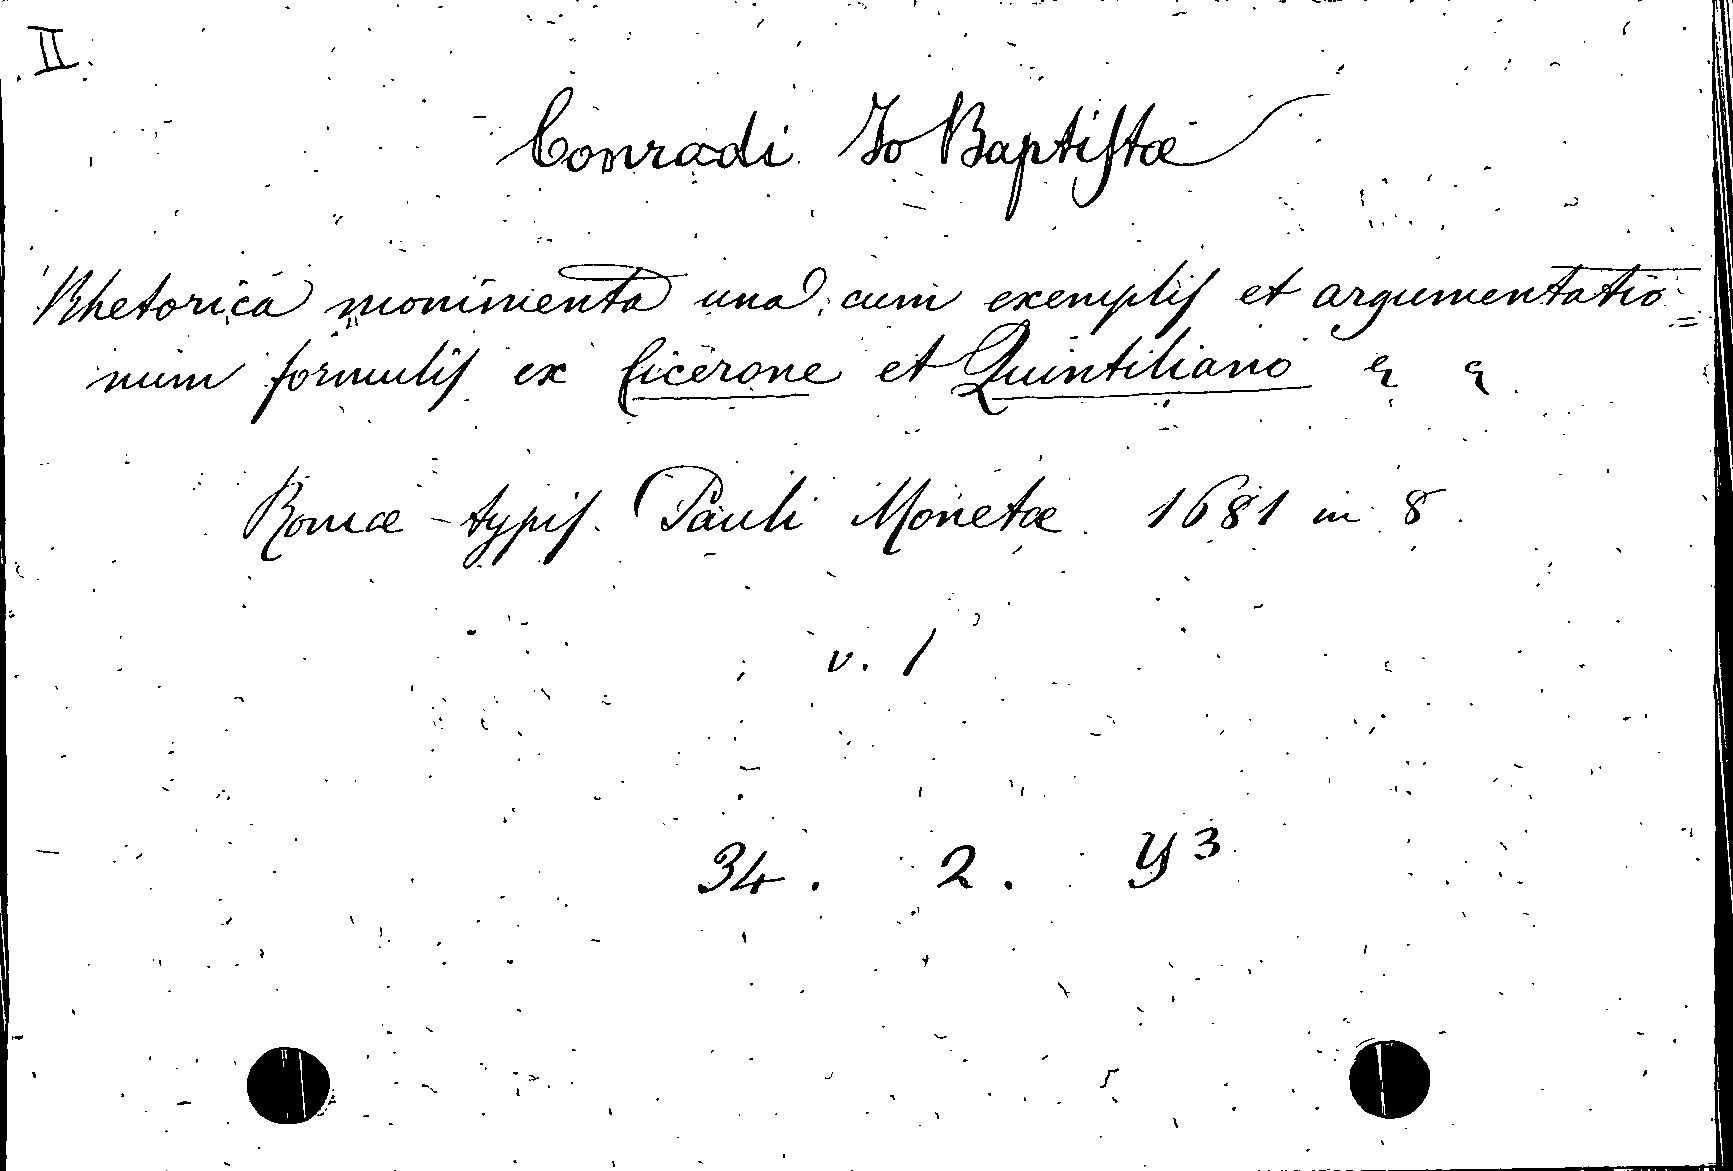 II.
Conradi Jo Baptiſtæ
Rhetorica monimenta una cum exempliſ et argumentatio=
num formuliſ ex Cicerone et Quintiliano & &
Romæ - typiſ. Pauli Monetæ 1681 in 8.
v. 1
34. 2. Y 3